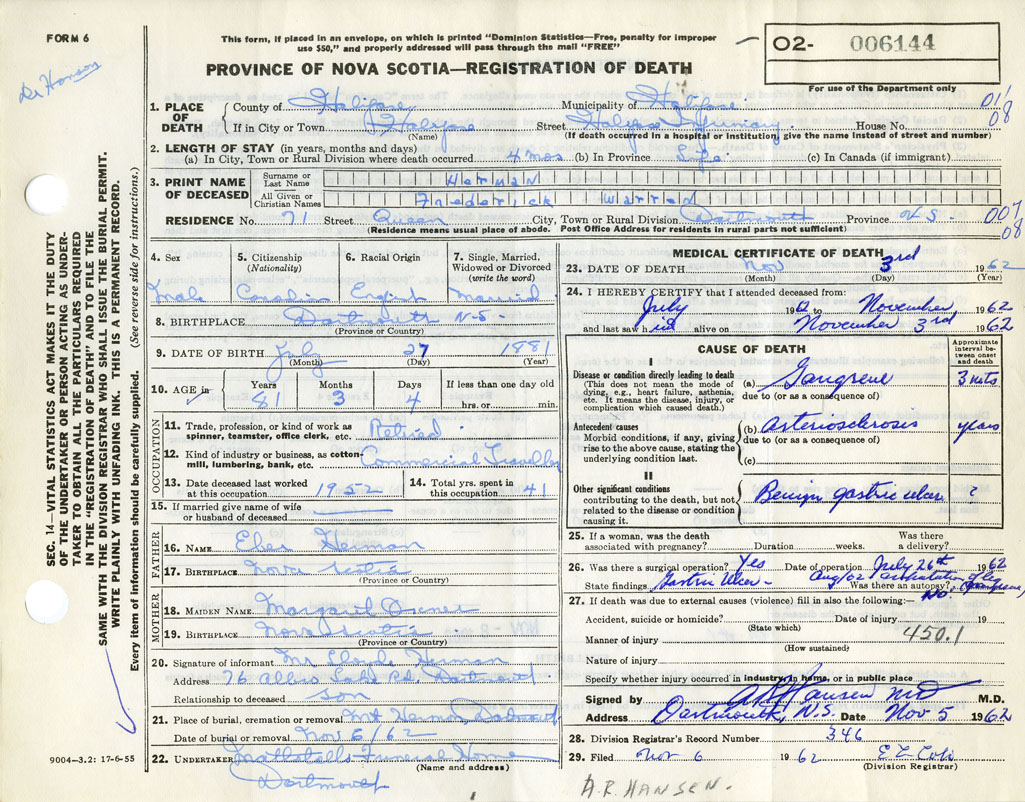 FORM 6
This form, if placed in an envelope, on which is printed "Dominion Statistics—Free, penalty for improper
use $50," and properly addressed will pass through the mail "FREE"
O2- 006144
Dr Hansen
PROVINCE OF NOVA SCOTIA—REGISTRATION OF DEATH
For use of the Department only
1. PLACE OF DEATH
County of Halifax Municipality of Halifax 011
If in City or Town Halifax Street Halifax Infirmary House No. 08
(Name) (If death occurred in a hospital or institution, give the name instead of street and number)
2. LENGTH OF STAY (in years, months and days)
(a) In City, Town or Rural Division where death occurred 4 mos (b) In Province Life (c) In Canada (if immigrant)
3. PRINT NAME OF DECEASED
Surname or Last Name Herman
All Given or Christian Names Frederick Warren
RESIDENCE No. 71 Street Queen City, Town or Rural Division Dartmouth Province N.S. 007
(Residence means usual place of abode. Post Office Address for residents in rural parts not sufficient) 08
4. Sex 5. Citizenship (Nationality) 6. Racial Origin 7. Single, Married, Widowed or Divorced (write the word)
Male Canadian Married
8. BIRTHPLACE Dartmouth N.S.
(Province or Country)
9. DATE OF BIRTH July 27 1881
(Month) (Day) (Year)
10. AGE in Years Months Days If less than one day old
81 3 4 hrs. or min.
OCCUPATION
11. Trade, profession, or kind of work as
spinner, teamster, office clerk, etc. Retired
12. Kind of industry or business, as cotton-
mill, lumbering, bank, etc. Commercial Traveller
13. Date deceased last worked
at this occupation 1952
14. Total yrs. spent in
this occupation 41
15. If married give name of wife
or husband of deceased
FATHER
16. NAME Eber Herman
17. BIRTHPLACE Nova Scotia
(Province or Country)
MOTHER
18. MAIDEN NAME Margaret
19. BIRTHPLACE Nova Scotia
(Province or Country)
20. Signature of informant Mr Herman
Address 76 Albro Lake Rd, Dartmouth
Relationship to deceased son
21. Place of burial, cremation or removal Mt Hermon Dartmouth
Date of burial or removal Nov 6/62
22. UNDERTAKER Mattatalls Funeral Home
(Name and address)
Dartmouth
9004—3.2: 17-6-55
SEC. 14—VITAL STATISTICS ACT MAKES IT THE DUTY
OF THE UNDERTAKER OR PERSON ACTING AS UNDER-
TAKER TO OBTAIN ALL THE PARTICULARS REQUIRED
IN THE "REGISTRATION OF DEATH" AND TO FILE THE
SAME WITH THE DIVISION REGISTRAR WHO SHALL ISSUE THE BURIAL PERMIT.
WRITE PLAINLY WITH UNFADING INK. THIS IS A PERMANENT RECORD.
Every item of information should be carefully supplied. (See reverse side for instructions.)
MEDICAL CERTIFICATE OF DEATH
23. DATE OF DEATH Nov 3rd 1962
(Month) (Day) (Year)
24. I HEREBY CERTIFY that I attended deceased from:
July 1962 to November 1962
and last saw him alive on November 3rd, 1962
CAUSE OF DEATH
Approximate interval be-
tween onset and death
I
Disease or condition directly leading to death
(This does not mean the mode of
dying, e.g., heart failure, asthenia,
etc. It means the disease, injury, or
complication which caused death.)
(a) Gangrene 3 mts
due to (or as a consequence of)
Antecedent causes
Morbid conditions, if any, giving
rise to the above cause, stating the
underlying condition last.
(b) arteriosclerosis years
due to (or as a consequence of)
(c)
II
Other significant conditions
contributing to the death, but not
related to the disease or condition
causing it.
Benign gastric ulcer ?
25. If a woman, was the death
associated with pregnancy? Duration weeks. Was there
a delivery?
26. Was there a surgical operation? Yes Date of operation July 26th 1962
State findings Gastric Ulcer - Aug/62 amputation of leg (gangrene)
Was there an autopsy? No
27. If death was due to external causes (violence) fill in also the following:—
Accident, suicide or homicide? Date of injury 19
(State which)
Manner of injury 450.1
(How sustained)
Nature of injury
Specify whether injury occurred in industry, in home, or in public place
Signed by A R Hansen MD M.D.
Address Dartmouth, N.S. Date Nov 5 1962
28. Division Registrar's Record Number 346
29. Filed Nov 6 1962
(Division Registrar)
A.R. HANSEN.